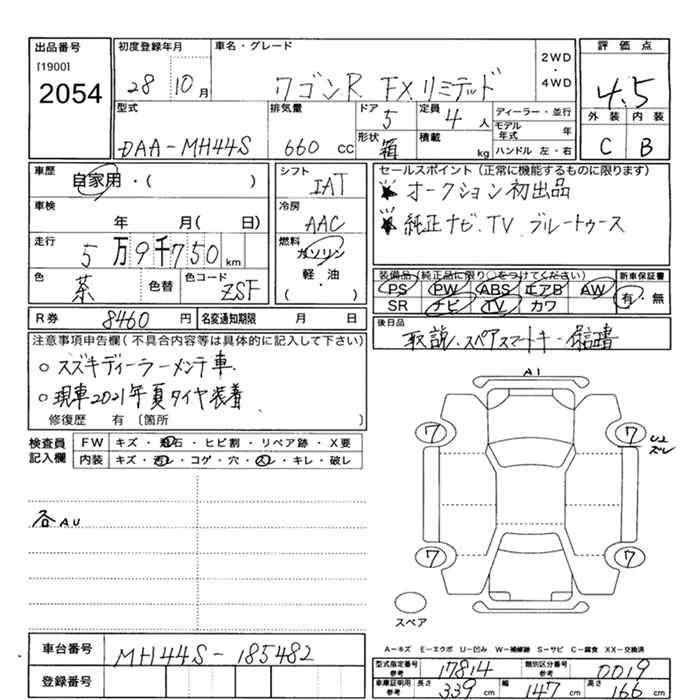 出品番号
[1900]
2054
初度登録年月
28 10月
車名・グレード
ワゴンR FXリミテッド
2WD
・
4WD
評価点
4.5
外装 内装
C B
型式
DAA-MH44S
排気量
660 CC
ドア
5
形状
箱
定員
4 人
積載
kg
ディーラー・並行
モデル年式 年
ハンドル 左・右
車歴
自家用・( )
車検
年 月( 日)
走行
5万9千750km
色
茶
色替
色コード
ZSF
シフト
IAT
冷房
AAC
燃料
ガソリン
・
軽・油
( )
セールスポイント(正常に機能するものに限ります)
オークション初出品
純正ナビ.TV.ブルートゥース
装備品(純正品に限り○をつけてください)
PS PW ABS エアB AW
SR ナビ TV カワ
新車保証書
有・無
R券 8460円
名変通知期限 月 日
後日品
取説.スペアスマートキー 保証書
注意事項申告欄(不具合内容等は具体的に記入して下さい)
○スズキディーラーメンテ車.
○現車2021年夏タイヤ装着
修復歴 有 〔箇所 〕
検査員
記入欄
FW キズ・飛石・ヒビ割・リペア跡・X要
内装 キズ・汚レ・コゲ・穴・スレ・キレ・破レ
各AU
A1
7 7 U2
スレ
7 7
スペア
A-キズ E-エクボ U-凹み W-補修跡 S-サビ C-腐食 XX-交換済
車台番号 MH44S-185482
登録番号
型式指定番号
参考
17814
類別区分番号
参考
0019
車庫証明用
参考
長さ 339 cm 幅 147 cm 高さ 166 cm